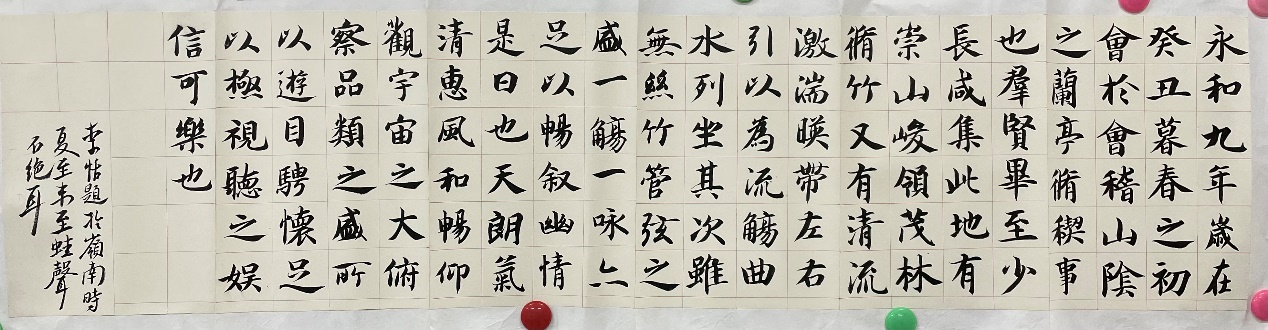 永和九年歲在
癸丑暮春之初
會於會稽山陰
之蘭亭脩禊事
也羣賢畢至少
長咸集此地有
崇山峻領茂林
脩竹又有清流
激湍暎帶左右
引以為流觴曲
水列坐其次雖
無絲竹管弦之
盛一觴一咏亦
足以暢叙幽情
是日也天朗氣
清惠風和暢仰
觀宇宙之大俯
察品類之盛所
以遊目騁懷足
以極視聽之娛
信可樂也
李恬題於嶺南時
夏至未至蛙聲
不絕耳